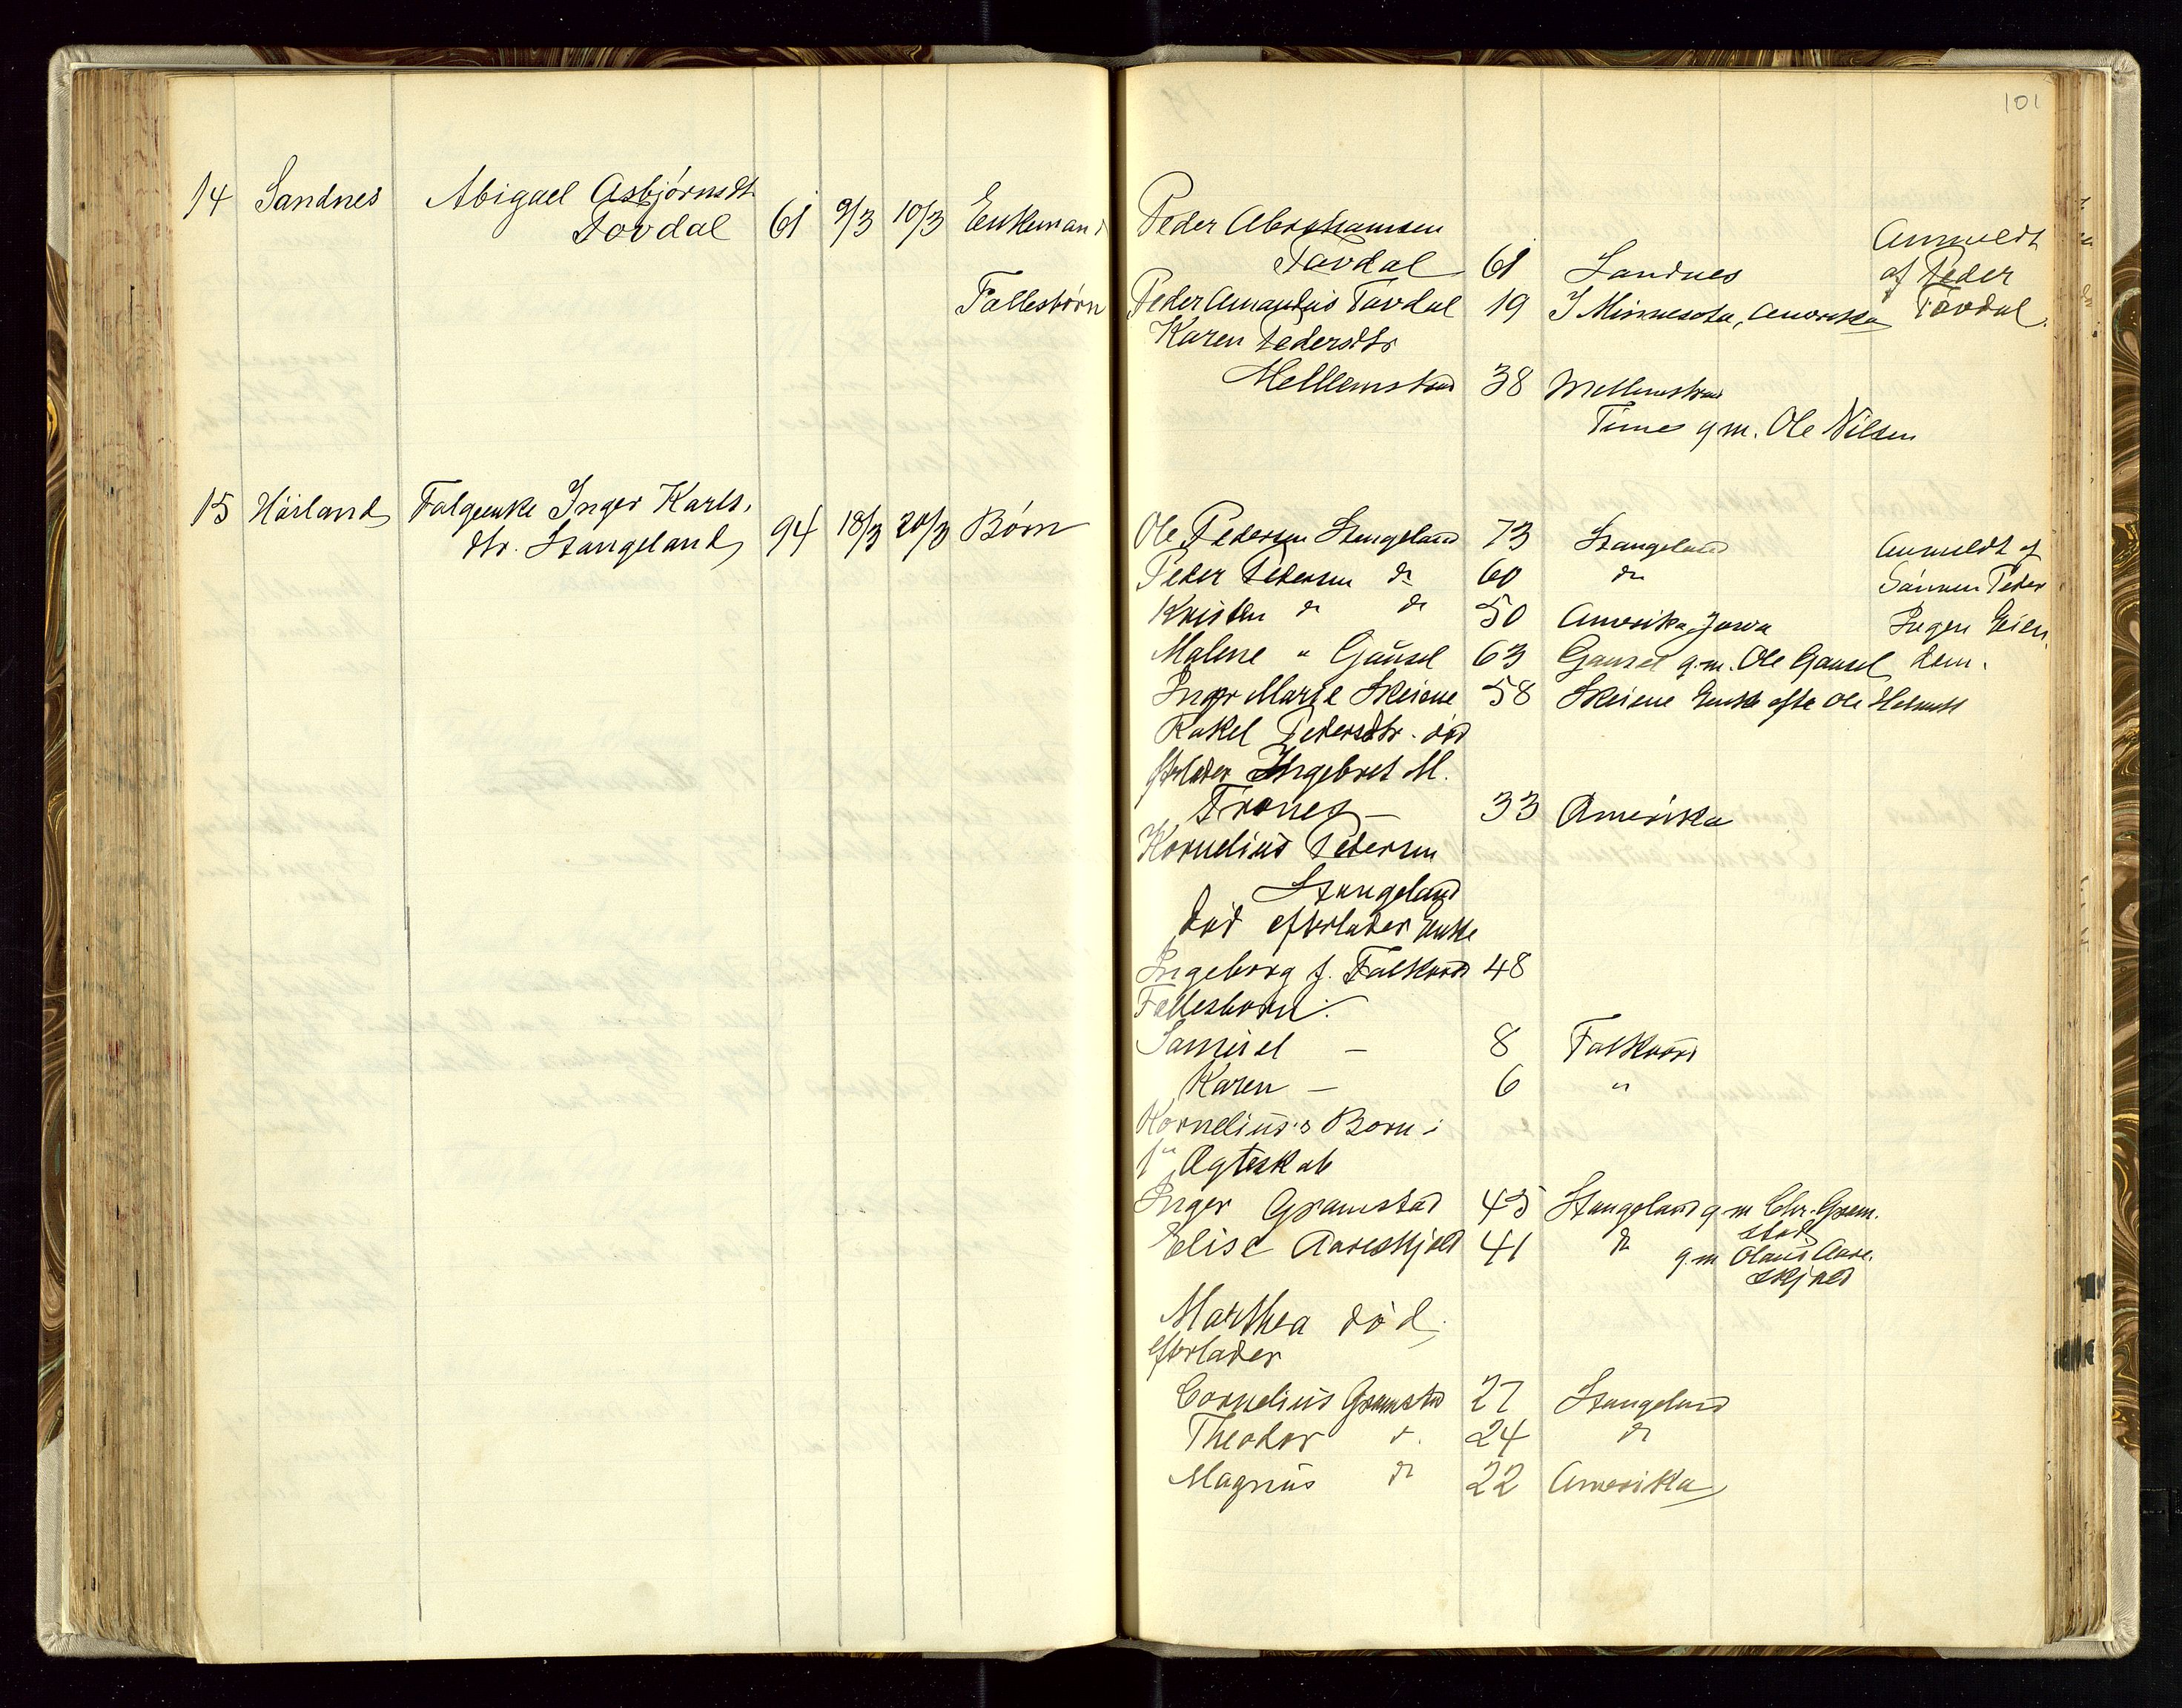 101
14 Sandnes Abigael Asbjörnsdt.
Tovdal 61 9/3 10/3 Enkemand
Fællesbörn
Peder Abrahamsen
Tavdal 61 Sandnes
Peder Amandus Tavdal 19 I Minnesota, Amerika
Karen Pedersdtr
Mellemstrand 38 Mellemstrand
Time g m. Ole Nilsen
Anmeldt
af Peder
Tövdal.
15 Höiland Folgeenke Inger Karls.
dtr. Stangeland 94 18/3 20/3 Börn
Ole Pedersen Stangeland 73 Stangeland
Peder Pedersen do 60 do
Kristen do do 50 Amerika Jowa
Malene " Gausel 63 Gausel g.m. Ole Gausel
Inger Marie Skeiene 58 Skeiene Enke efter Ole
Anmeldt af
Sönnen Peder
Ingen Eien
dom.
Rakel Pedersdtr. död
efterlader Ingebret M.
Trones – 33 Amerika
Kornelius Pedersen
Stangeland
död efterlader Enke
Ingeborg f. 48
Fællesbörn:
Samuel – 8
Karen – 6 "
Kornelius's Börn i
1ste Ægteskab
Inger Gramstad 43 Stangeland g m Chr. Gram.
stad
Elise Aareskjold 41 do g.m Olaus Aare.
skjold
Marthea död.
efterlader
Cornelius Gramstad 27 Stangeland
Theodor do. 24 do
Magnus do 22 Amerika